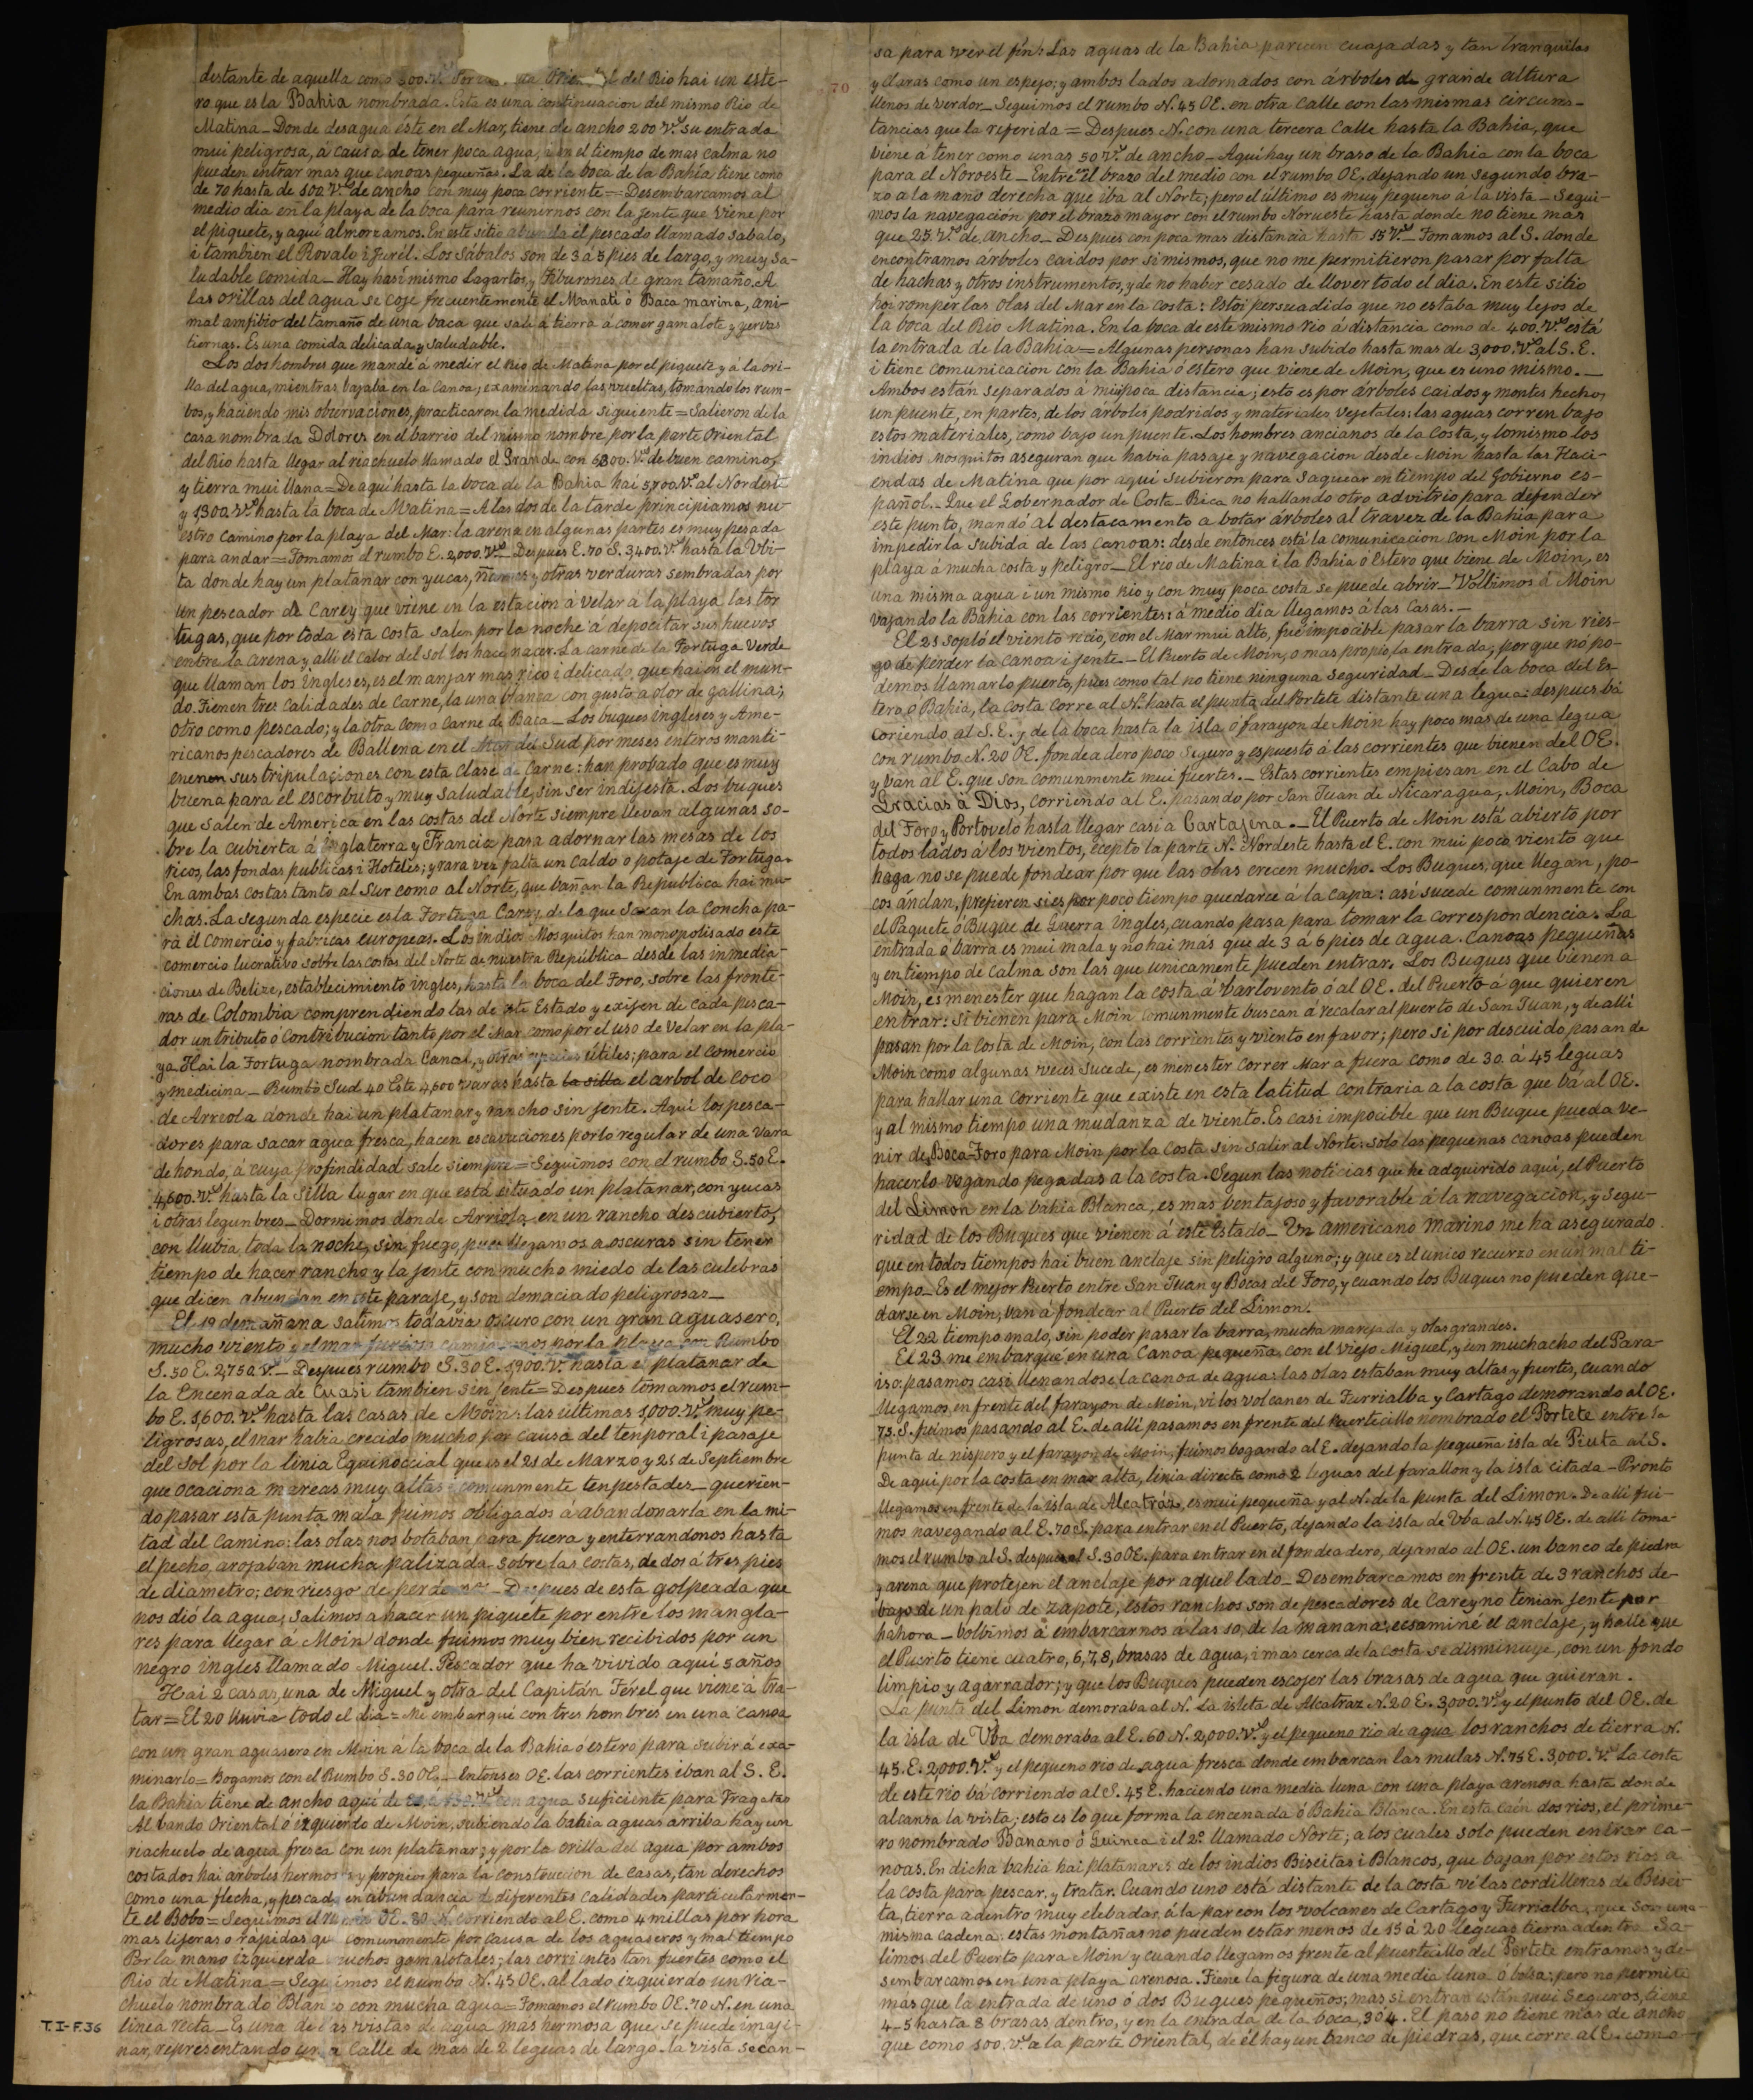 distante de aquella como 500. V.s del Rio hai un este-
ro que es la Bahia nombrada. Esta es una continuacion del mismo Rio de
Matina_Donde desagua éste en el Mar, tiene de ancho 200 V.s su entrada
mui peligrosa, á causa de tener poca agua, i en el tiempo de mas calma no
pueden entrar mas que canoas pequeñas. La de la boca de la Bahía tiene como
de 70 hasta de 100 V.s de ancho con muy poca corriente=Desembarcamos al
medio dia en la playa de la boca para reunirnos con la jente que viene por
el piquete, y aqui almorzamos. En este sitio abunda el pescado llamado sabalo,
i tambien el Rovalo i Jurél. Los Sábalos son de 3 á 5 pies de largo, y muy sa-
ludable comida_Hay hasí mismo Lagartos, y Tiburones de gran tamaño. A
las orillas del agua se coje frecuentemente el Manatí ó Baca marina, ani-
mal amfibio del tamaño de una baca que sale á tierra á comer gamalote y yervas
tiernas. Es una comida delicada y saludable.
Los dos hombres que mandé á medir el Rio de Matina por el piquete y á la ori-
lla del agua, mientras bajaba en la Canoa, examinando las vueltas, tomando los rum-
bos, y haciendo mis observaciones, practicaron la medida siguiente=Salieron de la
casa nombrada Dolores en el barrio del mismo nombre por la parte Oriental
del Rio hasta llegar al riachuelo llamado el Grande con V.s de buen camino,
y tierra mui llana=De aquí hasta la boca de la Bahia hai 5,700 V.s al Nordeste
y 1,300 V.s hasta la boca de Matina=A las dos de la tarde principiamos nu-
estro camino por la playa del Mar: la arena en algunas partes es muy pesada
para andar=Tomamos el rumbo E. 2,000. V.s_Despues E. 70 S. 3,400. V.s hasta la Vbi-
ta donde hay un platanar con yucas, ñames y otras verduras sembradas por
un pescador de Carey que viene en la estacion á velar á la playa las tor
tugas, que por toda esta costa salen por la noche á depocitar sus huevos
entre la arena y allí el calor del sol los hace nacer. La carne de la Tortuga Verde
que llaman los Ingleses, es el manjar mas rico i delicado, que hai en el mun-
do. Tienen tres calidades de Carne, la una blanca con gusto á olor de gallina;
otro como pescado; y la otra como carne de Baca_Los buques ingleses y Ame-
ricanos pescadores de Ballena en el Mar del Sud por meses enteros manti-
enenen sus tripulaciones con esta clase de Carne: han probado que es muy
buena para el escorbuto y muy saludable, sin ser indijesta. Los buques
que salen de America en las costas del Norte siempre llevan algunas so-
bre la cubierta á Inglaterra y Francia para adornar las mesas de los
ricos, las fondas publicas i Hoteles; y rara vez falta un caldo ó potaje de Tortuga.
En ambas costas tanto al Sur como al Norte, que bañan la Republica hai mu-
chas. La segunda especie es la Tortuga Carey, de la que sacan la Concha pa-
ra el comercio y fabricas europeas. Los indios Mosquitos han monopolisado este
comercio lucrativo sobre las costas del Norte de nuestra República desde las inmedia-
ciones de Belize, establecimiento ingles, hasta la boca del Toro, sobre las fronte-
ras de Colombia comprendiendo las de este Estado y exijen de cada pesca-
dor un tributo ó contribucion tanto por el Mar como por el uso de Velar en la pla-
ya Hai la Tortuga nombrada Canal, y otras especies útiles; para el comercio
y medicina_Rumbo Sud 40 Este 4,600 varas hasta la silla el arbol de coco
de Arreola donde hai un platanar y rancho sin jente. Aqui los pesca-
dores para sacar agua fresca, hacen escavaciones por lo regular de una vara
de hondo, á cuya profindidad sale siempre=Seguimos con el rumbo S. 50 E.
4,600. V.s hasta la Silla lugar en que está situado un platanar, con yucas
i otras legunbres_Dormimos donde Arriola, en un rancho descubierto,
con lluvia toda la noche, sin fuego, pues llegamos a oscuras sin tener
tiempo de hacer rancho y la jente con mucho miedo de las culebras
que dicen abundan en este paraje, y son demaciado peligrosas_
El 19 de mañana salimos todavia oscuro con un gran aguasero,
mucho viento y el mar furioso caminamos por la playa con Rumbo
S. 50 E. 2,750 V.s_Despues rumbo S. 30 E. 1,900. V.s hasta el platanar de
la Encenada de Cuasi tambien sin jente=Despues tomamos el rum-
bo E. 1,600. V.s hasta las casas de Moin: las últimas 1,000. V.s muy pe-
ligrosas, el mar habia crecido mucho por causa del tenporal i pasaje
del Sol por la linia Equinoccial que es el 21 de Marzo y 21 de Septiembre
que ocaciona mareas muy altas i comunmente tenpestades_querien-
do pasar esta punta mala fuimos obligados á abandonarla en la mi-
tad del camino: las olas nos botaban para fuera y enterrandonos hasta
el pecho, arojaban mucha palizada sobre las costas, de dos á tres pies
de diametro; con riesgo de perdernos_Despues de esta golpeada que
nos dió la agua, salimos a hacer un piquete por entre los mangla-
res para llegar á Moin donde fuimos muy bien recibidos por un
negro ingles llamado Miguel. Pescador que ha vivido aquí 5 años
Hai 2 casas, una de Miguel y otra del Capitán Térel que viene á tra-
tar=El 20 lluvia todo el dia=Me embarqué con tres hombres en una canoa
con un gran aguasero en Moin á la boca de la Bahia ó estero para subir á exa-
minarlo=Bogamos con el Rumbo S. 30 OE._Entonses OE. las corrientes iban al S. E.
la Bahia tiene de ancho aquí de V.s con agua suficiente para Fragatas
Al bando Oriental ó izquierdo de Moin, subiendo la bahia aguas arriba hay un
riachuelo de agua fresca con un platanar; y por la orilla del agua por ambos
costados hai arboles hermosos y propios para la construccion de casas, tan derechos
como una flecha, y pescado en abundancia de diferentes calidades particularmen-
te el Bobo=Seguimos el rumbo OE. 80 N. corriendo al E. como 4 millas por hora
mas lijeras ó rápidas que comunmente por causa de los aguaseros y mal tiempo
Por la mano izquierda muchos gamalotales; las corrientes tan fuertes como el
Rio de Matina=Seguimos el rumbo N. 45 OE. al lado izquierdo un ria-
chuelo nombrado Blanco con mucha agua=Tomamos el rumbo OE. 70 N. en una
linea recta_Es una de las vistas de agua mas hermosa que se puede imaji-
nar, representando una calle de mas de 2 leguas de largo_la vista se can-
T.I-F.36
70
sa para ver el fin: Las aguas de la Bahia parecen cuajadas y tan tranquilas
y claras como un espejo; y ambos lados adornados con árboles de grande altura
llenos de verdor_Seguimos el rumbo N. 45 OE. en otra calle con las mismas circuns-
tancias que la referida=Despues N. con una tercera calle hasta la Bahia, que
viene á tener como unas 50 V.s de ancho_Aquí hay un braso de la Bahia con la boca
para el Noroeste_Entré el brazo del medio con el rumbo OE. dejando un segundo bra-
zo a la mano derecha que iba al Norte; pero el último es muy pequeno á la vista_Segui-
mos la navegación por el brazo mayor con el rumbo Norueste hasta donde no tiene mas
que 25. V.s de ancho_Despues con poca mas distancia hasta 15 V.s_Tomamos al S. donde
encontramos árboles caidos por si mismos, que no me permitieron pasar por falta
de hachas y otros instrumentos, y de no haber cesado de llover todo el dia. En este sitio
hoi romper las olas del Mar en la costa: estoi persuadido que no estaba muy lejos de
la boca del Rio Matina. En la boca de este mismo rio á distancia como de 400. V.s está
la entrada de la Bahia=Algunas personas han subido hasta mas de 3,000. V.s al S. E.
i tiene comunicacion con la Bahia ó estero que viene de Moin, que es uno mismo._
Ambos están separados á mui poca distancia; esto es por árboles caidos y montes hechos
un puente, en partes, de los árboles podridos y materiales vejetales: las aguas corren bajo
estos materiales, como bajo un puente. Los hombres ancianos de la Costa, y lo mismo los
indios Mosquitos aseguran que habia pasaje y navegacion desde Moin hasta las Haci-
endas de Matina que por aquí subieron para saquear en tiempo del Gobierno es-
pañol_Que el Gobernador de Costa_Rica no hallando otro advitrio para defender
este punto, mandó al destacamento a botar árboles al travez de la Bahia para
impedir la subida de las canoas: desde entonces está la comunicacion con Moin por la
playa á mucha costa y peligro_El rio de Matina i la Bahia ó Estero que viene de Moin, es
una misma agua i un mismo Rio y con muy poca costa se puede abrir_Volbimos á Moin
vajando la Bahia con las corrientes: á medio dia llegamos á las casas._
El 21 sopló el viento récio, con el Mar mui alto, fué impocible pasar la barra sin ries-
go de perder la canoa i jente._El Puerto de Moin, o mas propio la entrada, por que no po-
demos llamarlo puerto, pues como tal no tiene ninguna seguridad_Desde la boca del Es-
tero ó Bahia, la costa corre al N. hasta el punta del Portete distante una legua: despues bá
coriendo al S. E. y de la boca hasta la isla ó farayon de Moin hay poco mas de una legua
con rumbo N. 20 OE. fondeadero poco seguro y espuesto á las corrientes que bienen del OE.
y van al E. que son comunmente mui fuertes._Estas corrientes empiesan en el Cabo de
Gracias á Dios, corriendo al E. pasando por San Juan de Nicaragua, Moin, Boca
del Toro y Portovelo hasta llegar casi a Cartajena._El Puerto de Moin está abierto por
todos lados á los vientos, ecepto la parte N. Nordeste hasta el E. con mui poco viento que
haga no se puede fondear por que las olas crecen mucho. Los Buques, que llegan, po-
cos ánclan, prefieren si es por poco tiempo quedarce á la capa: así sucede comunmente con
el Paquete ó Buque de Guerra ingles, cuando pasa para tomar la correspondencia. La
entrada ó barra es mui mala y no hai mas que de 3 á 6 pies de agua. Canoas pequeñas
y en tiempo de calma son las que unicamente pueden entrar. Los Buques que bienen a
Moin, es menester que hagan la costa á barlovento ó al OE. del Puerto á que quieren
entrar: si bienen para Moin comunmente buscan á recalar al puerto de San Juan, y de allí
pasan por la costa de Moin, con las corrientes y viento en favor; pero si por descuido pasan de
Moin como algunas veces sucede, es menester correr Mar a fuera como de 30 á 45 leguas
para hallar una corriente que existe en esta latitud contraria a la costa que bá al OE.
y al mismo tiempo una mudanza de viento. Es casi impocible que un Buque pueda ve-
nir de Boca-Toro para Moin por la costa sin salir al Norte: solo las pequenas canoas pueden
hacerlo vogando pegadas a la costa. Segun las noticias que he adquirido aquí, el Puerto
del Limon en la bahía Blanca, es mas bentajoso y favorable á la navegacion, y segu-
ridad de los Buques que vienen á este Estado_Un americano marino me ha asegurado
que en todos tiempos hai buen anclaje sin peligro alguno; y que es el unico recurzo en un mal ti-
empo_Es el mejor Puerto entre San Juan y Bocas del Toro, y cuando los Buques no pueden que-
darse en Moin, van á fondear al Puerto del Limon.
El 22 tiempo malo, sin poder pasar la barra, mucha marejada y olas grandes.
El 23 me embarqué en una Canoa pequeña, con el viejo Miguel, y un muchacho del Para-
iso: pasamos casi llenandose la canoa de agua: las olas estaban muy altas y fuertes, cuando
llegamos en frente del farayon de Moin, vi los volcanes de Turrialba y Cartago demorando al OE.
75. S. fuimos pasando al E. de allí pasamos en frente del Puertecillo nombrado el Portete entre la
punta de nispero y el farayon de Moin, fuimos bogando al E. dejando la pequeña isla de Piuta al S.
De aqui por la costa en mar alta, linia directa como 2 leguas del farallon y la isla citada_Pronto
llegamos en frente de la isla de Alcatráz, es mui pequeña y al N. de la punta del Limon. De allí fui-
mos navegando al E. 70 S. para entrar en el Puerto, dejando la isla de Uba al N. 45 OE. de allí toma-
mos el rumbo al S. despues al S. 30 OE. para entrar en el fondeadero, dejando al OE. un banco de piedra
y arena que protejen el anclaje por aquel lado_Desembarcamos en frente de 3 ranchos de-
bajo de un palo de zapote, estos ranchos son de pescadores de Carey no tenian jente por
hahora_bolbimos á embarcarnos a las 10, de la mañana: ecsaminé el anclaje, y hallé que
el Puerto tiene cuatro, 6, 7, 8, brasas de agua, i mas cerca de la costa se disminuye, con un fondo
limpio y agarrador; y que los Buques pueden escojer las brasas de agua que quieran.
La punta del Limon demoraba al N. La isleta de Alcatraz N. 20 E. 3,000. V.s y el punto del OE. de
la isla de Vba demoraba al E. 60 N. 2,000. V.s y el pequeno rio de agua los ranchos de tierra N.
45. E. 2,000. V.s y el pequeno rio de agua fresca donde embarcan las mulas N. 75 E. 3,000. V.s La costa
de este rio bá corriendo al S. 45 E. haciendo una media luna con una playa arenosa hasta donde
alcansa la vista; esto es lo que forma la encenada ó Bahia Blanca. En esta caén dos rios, el prime-
ro nombrado Banano ó Guinea i el 2.º llamado Norte; a los cuales solo pueden entrar ca-
noas. En dicha bahia hai platanares de los indios Biseitas i Blancos, que bajan por estos rios a
la costa para pescar, y tratar. Cuando uno está distante de la costa vé las cordilleras de Bisei-
ta, tierra adentro muy elebadas, á la par con los volcanes de Cartago y Turrialba, que son una
misma cadena: estas montañas no pueden estar menos de 15 á 20 leguas tierra adentro Sa-
limos del Puerto para Moin y cuando llegamos frente al puertecillo del Portete entramos y de-
sembarcamos en una playa arenosa. Tiene la figura de una media luna ó bolsa; pero no permite
mas que la entrada de uno ó dos Buques pequeños; mas si entran están mui seguros, tiene
4_5 hasta 8 brasas dentro, y en la entrada de la boca, 3 ó 4. El paso no tiene mas de ancho
que como 100. V.s a la parte Oriental, de él hay un banco de piedras, que corre al E. como